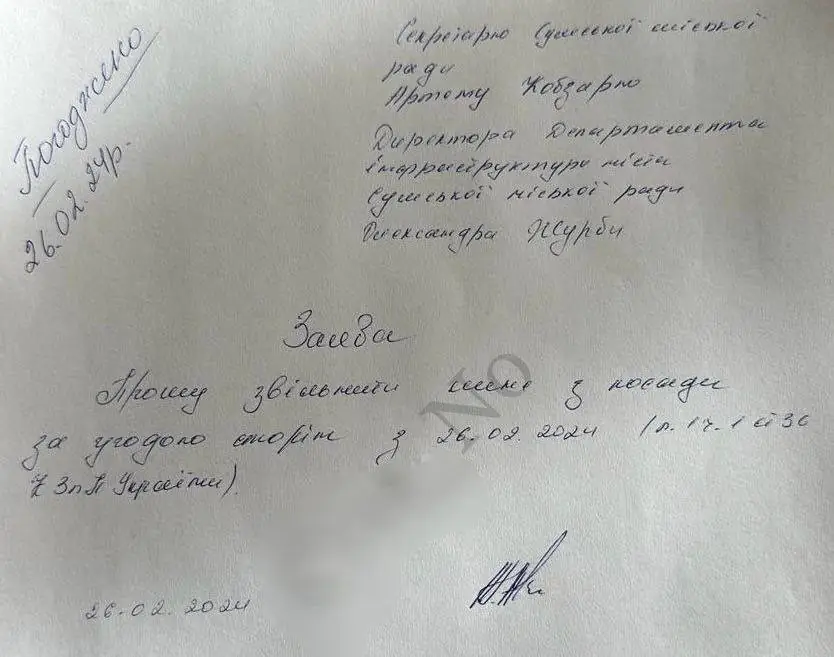 Погоджено
26.02.24р.
Секретарю Сумської міської
ради
Артему Кобзарю
Директора Департамента
інфраструктури міста
Сумської міської ради
Олександра Журби
Заява
Прошу звільнити мене з посади
за угодою сторін з 26.02.2024 (п. 1 ч. 1 ст 36
КЗпП України).
26.02.2024
No